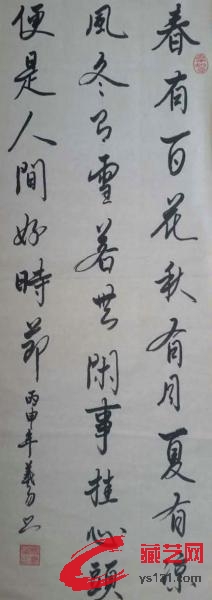 春有百花秋有月夏有凉
風冬有雪若無閑事挂心頭
便是人間好時節
丙申年義勇書
藏艺网
ys1121.com